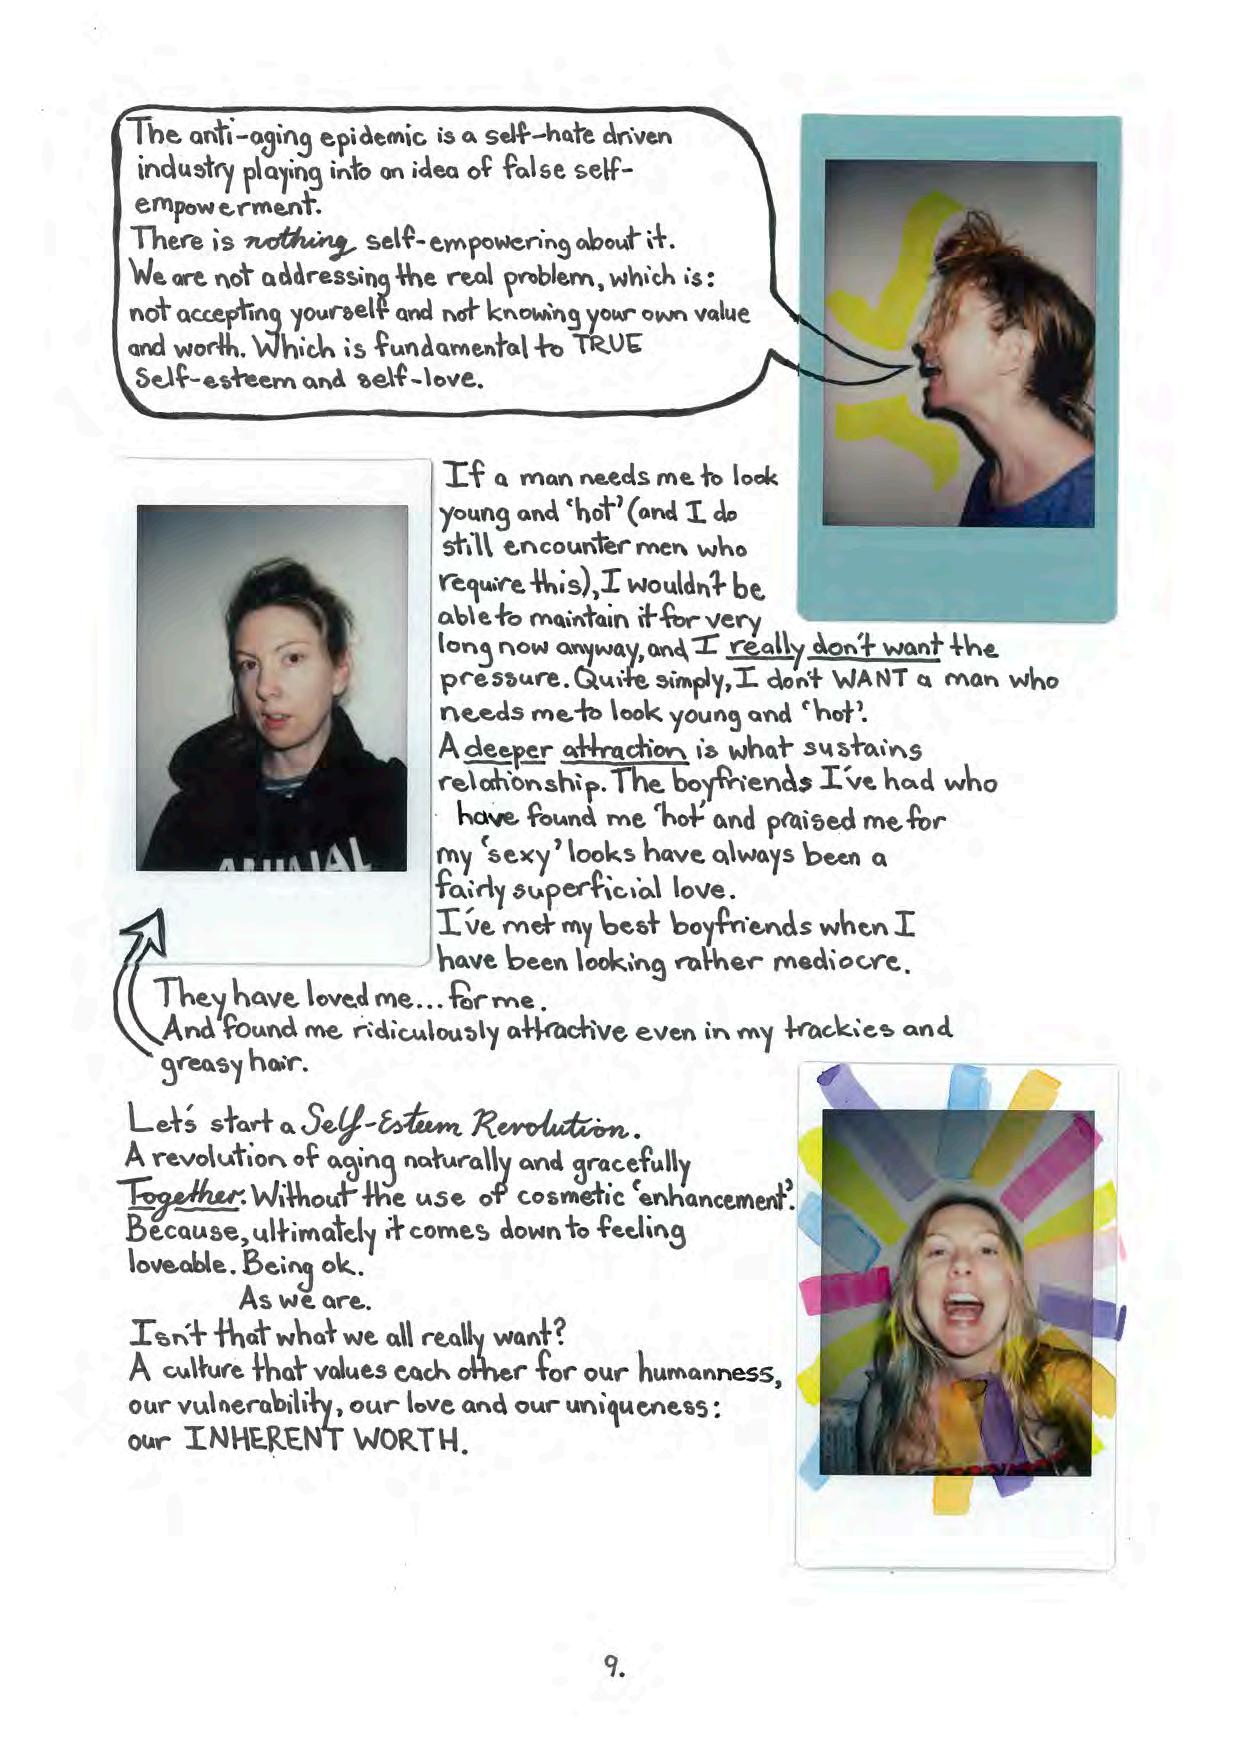 The anti-aging epidemic is a self-hate driven
industry playing into an idea of false self-
empowerment.
There is nothing self-empowering about it.
We are not addressing the real problem, which is:
not accepting yourself and not knowing your own value
and worth. Which is fundamental to TRUE
Self-esteem and self-love.
If a man needs me to look
young and 'hot' (and I do
still encounter men who
require this), I wouldn't be
able to maintain it for very
long now anyway, and I really don't want the
pressure. Quite simply, I don't WANT a man who
needs me to look young and 'hot'.
A deeper attraction is what sustains
relationship. The boyfriends I've had who
have found me 'hot' and praised me for
my 'sexy' looks have always been a
fairly superficial love.
I've met my best boyfriends when I
have been looking rather mediocre.
They have loved me... for me.
And found me ridiculously attractive even in my trackies and
greasy hair.
ANIMAL
Let's start a Self-Esteem Revolution.
A revolution of aging naturally and gracefully
Together. Without the use of cosmetic 'enhancement'.
Because, ultimately it comes down to feeling
loveable. Being ok.
As we are.
Isn't that what we all really want?
A culture that values each other for our humanness,
our vulnerability, our love and our uniqueness:
our INHERENT WORTH.
9.